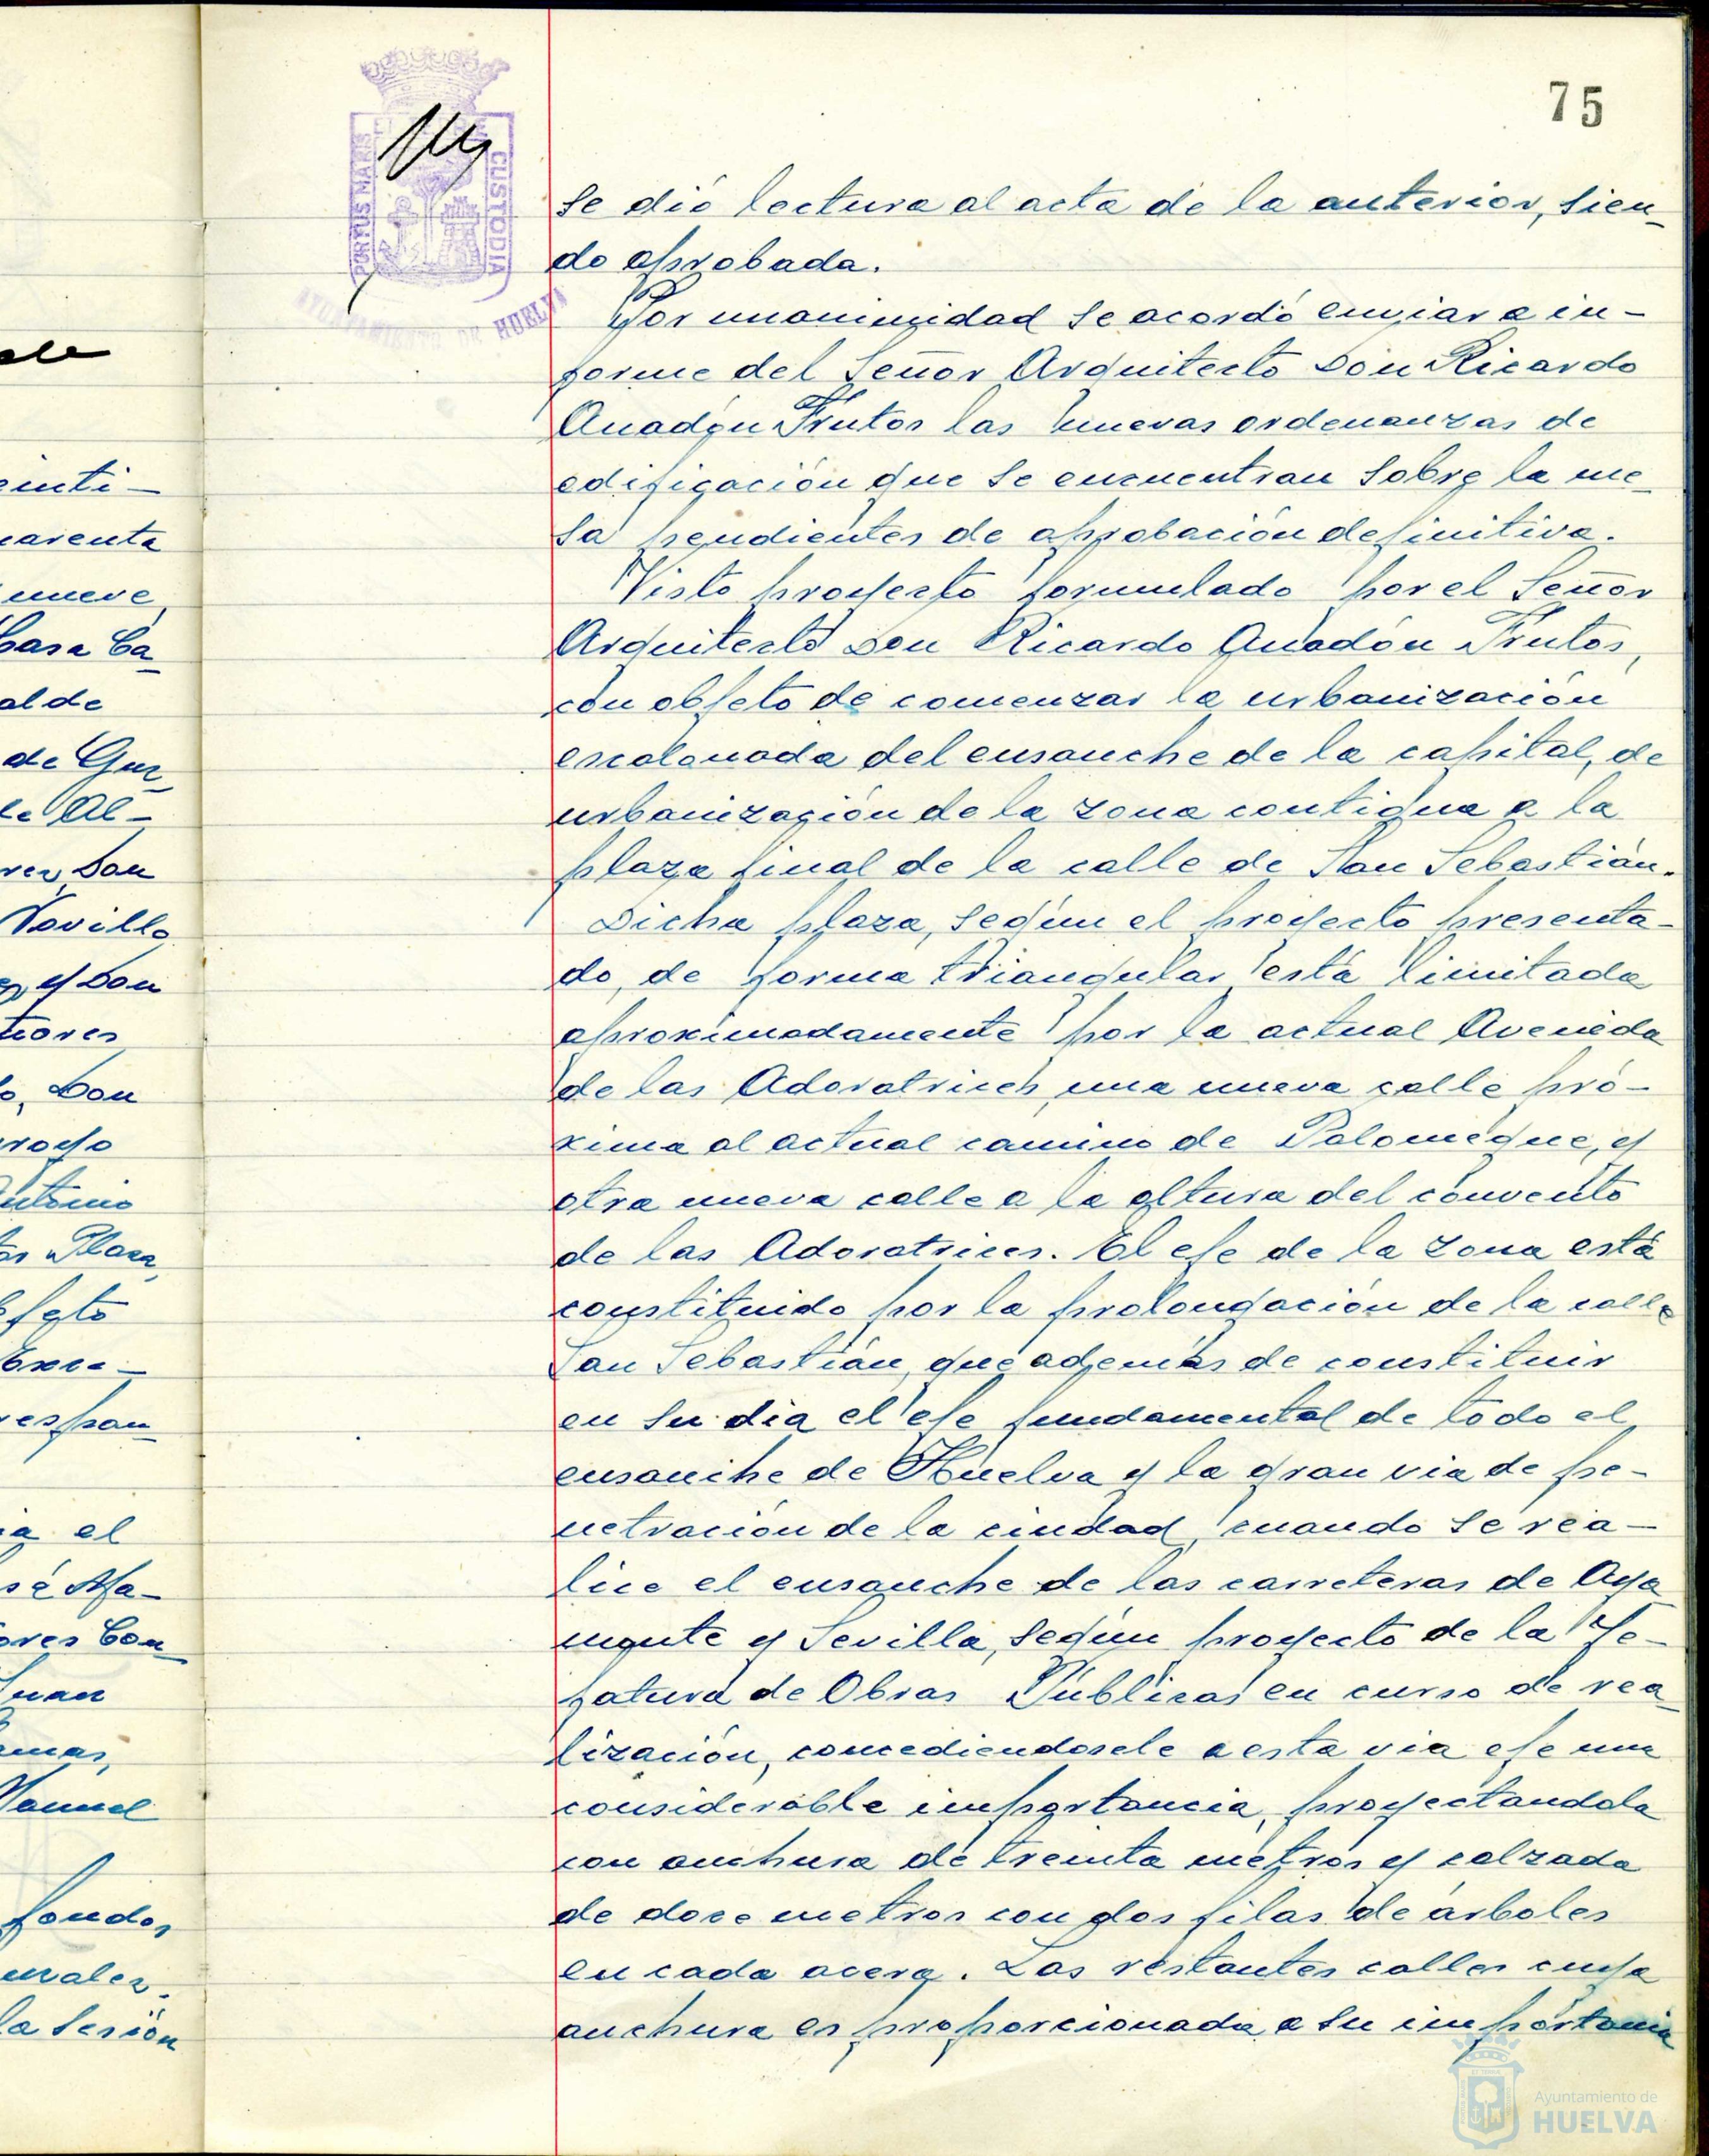 einti-
carenta
nueve,
Casa Ca-
alde
de Guz-
le Al-
Don
Novillo
y Don
Don
royo
Antonio
Plaza,
Exce-
espon-
ia el
sé Ma-
ores Con-
Juan
Manuel
fondos
la sesión
PORTUS MARIS ET TERRE CUSTODIA
AYUNTAMIENTO DE HUELVA
75
se dió lectura al acta de la anterior, sien-
do aprobada.
Por unanimidad se acordó enviar a in-
forme del Señor Arquitecto Don Ricardo
Anadón Frutos las nuevas ordenanzas de
edificación que se encuentran sobre la me-
sa pendientes de aprobación definitiva.
Visto proyecto formulado por el Señor
Arquitecto Don Ricardo Anadón Frutos,
con objeto de comenzar la urbanización
escalonada del ensanche de la capital, de
urbanización de la zona contigua a la
plaza final de la calle de San Sebastián.
Dicha plaza, según el proyecto presenta-
do, de forma triangular está limitada
aproximadamente por la actual Avenida
de las Adoratrices, una nueva calle pró-
xima al actual camino de Palomeque, y
otra nueva calle a la altura del convento
de las Adoratrices. El eje de la zona está
constituido por la prolongación de la calle
San Sebastián, que además de constituir
en su dia el eje fundamental de todo el
ensanche de Huelva y la gran via de pe-
netración de la ciudad, cuando se rea-
lice el ensanche de las carreteras de Aya
monte y Sevilla, según proyecto de la Je-
fatura de Obras Públicas en curso de rea-
lización, concediendosele a esta via eje una
considerable importancia, proyectandola
con anchura de treinta metros y calzada
de doce metros con dos filas de árboles
en cada acera. Las restantes calles cuya
anchura es proporcionada a su importancia
Ayuntamiento de
HUELVA